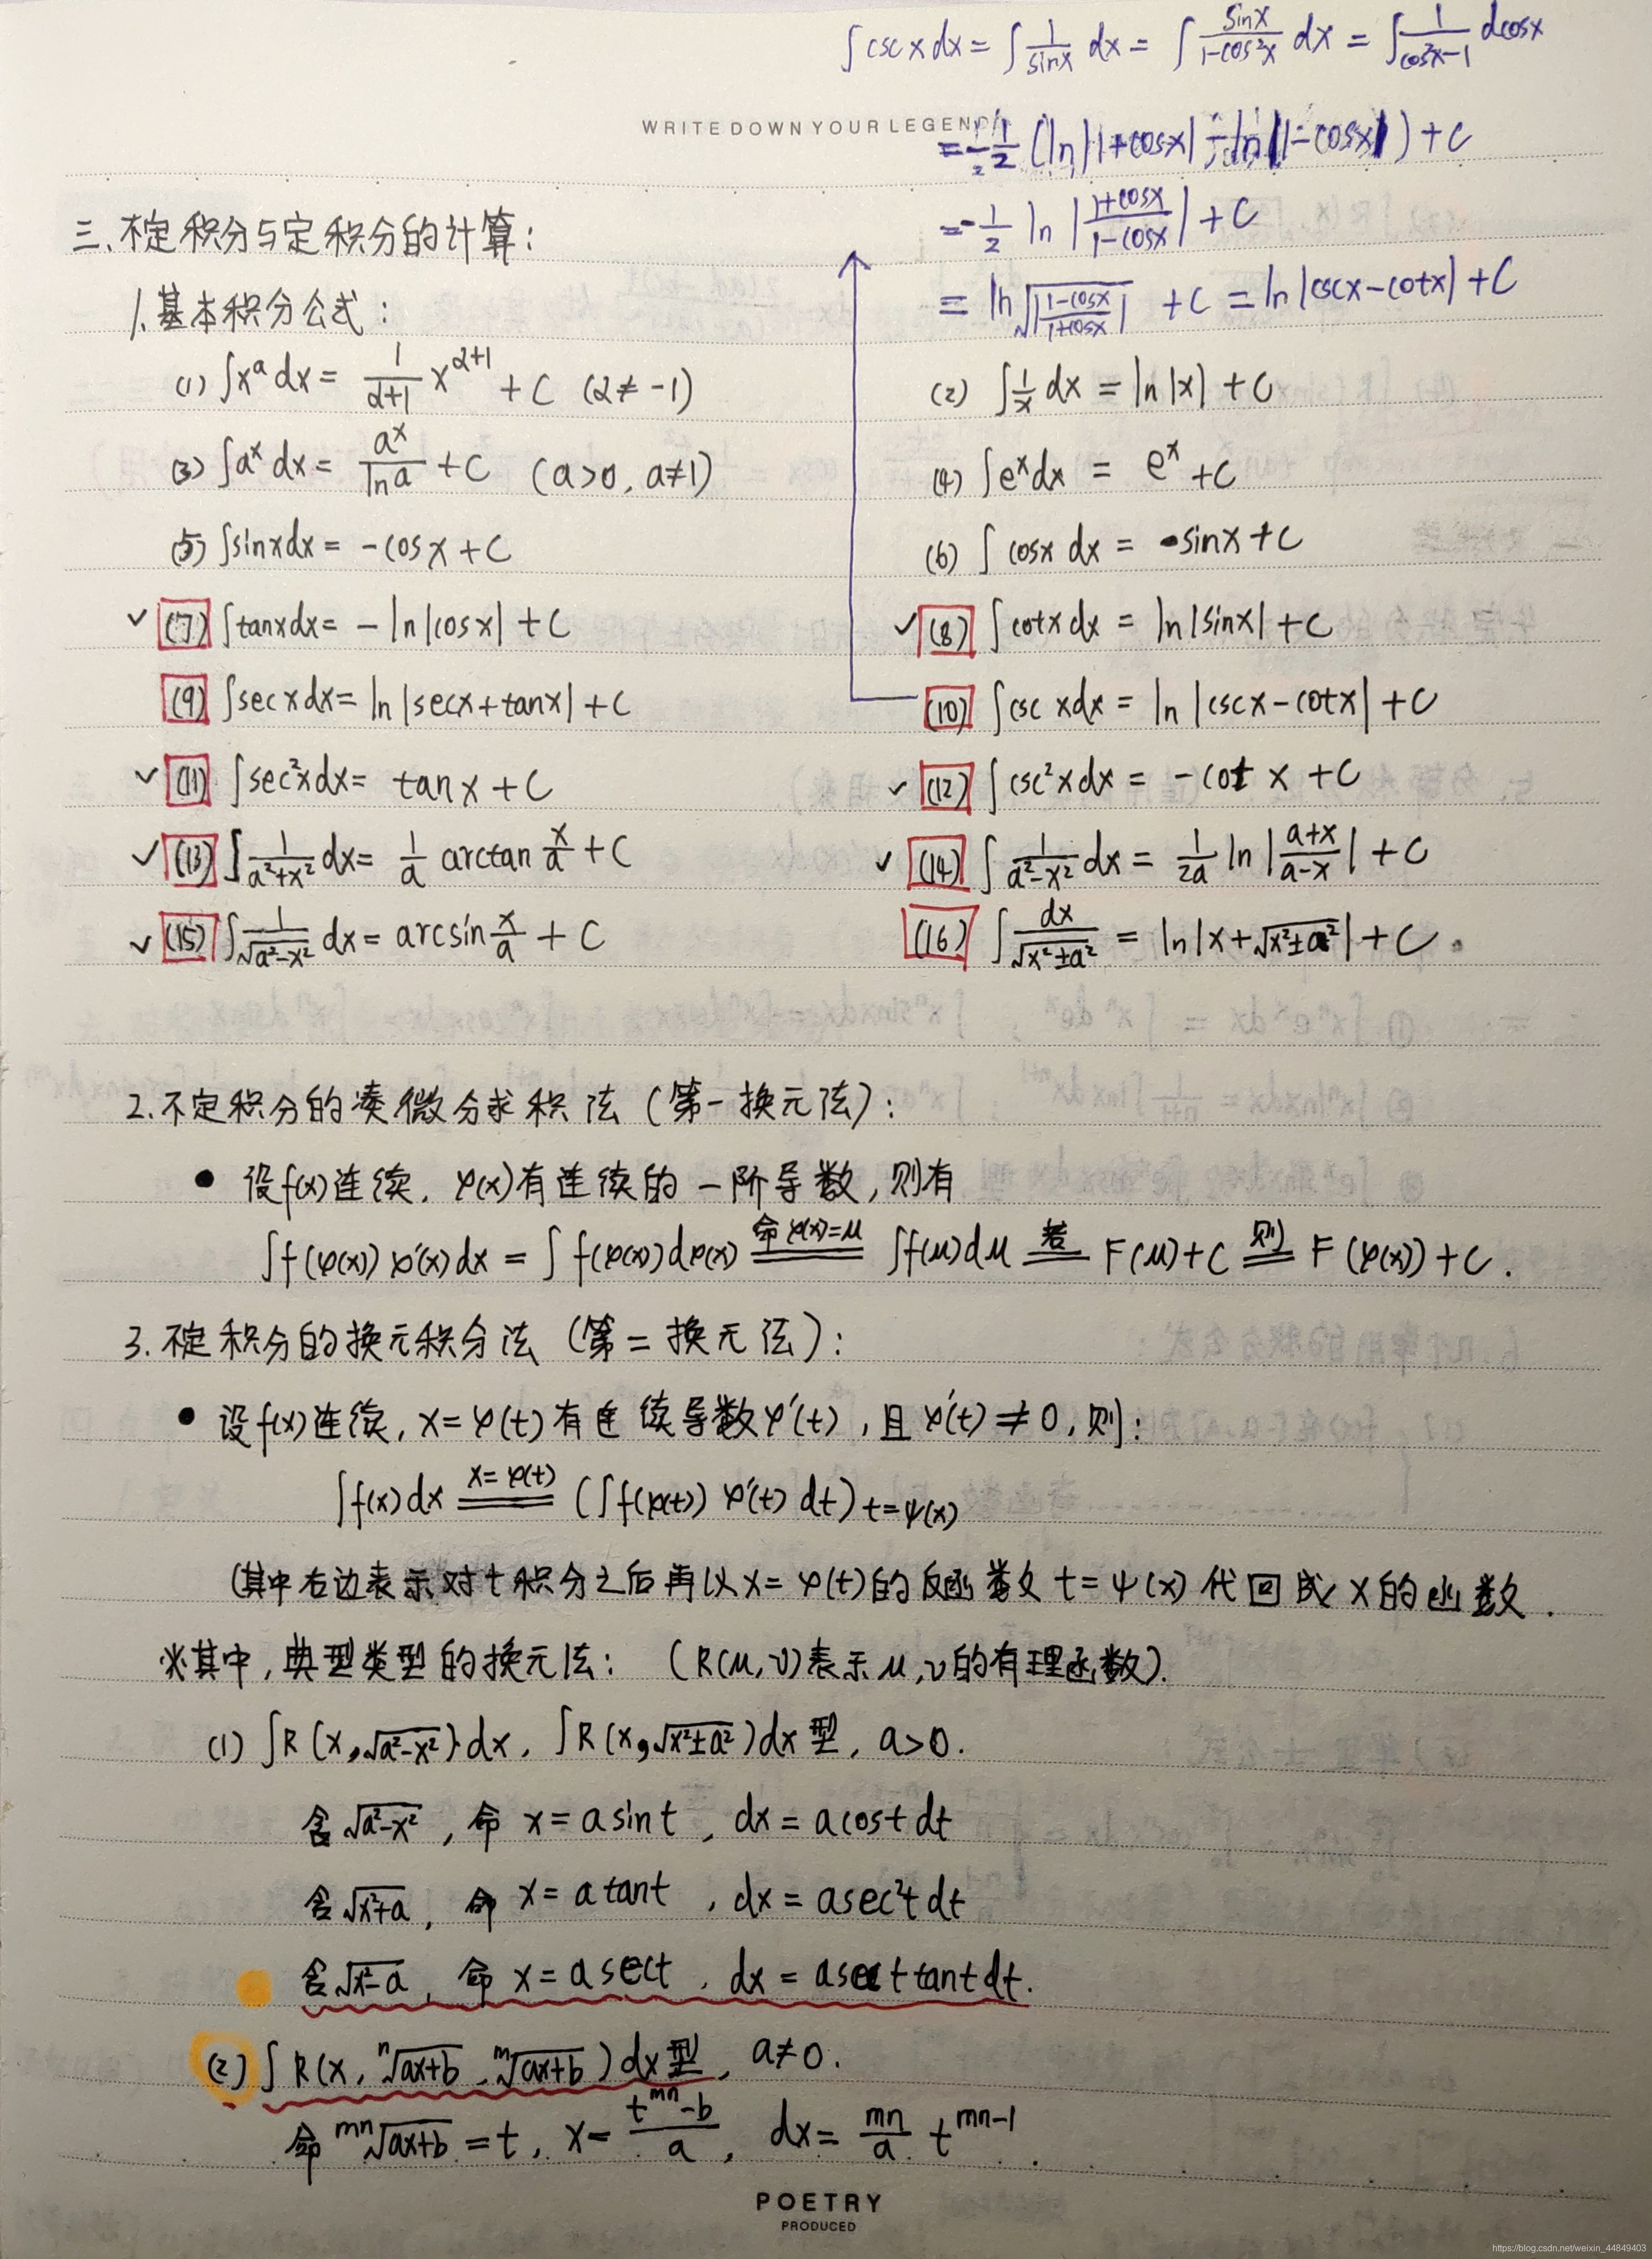 ∫cscxdx = ∫1/sinx dx = ∫sinx/(1-cos²x) dx = ∫1/(cos²x-1) dcosx
WRITE DOWN YOUR LEGEND
= -1/2 (ln|1+cosx| - ln|1-cosx|) + C
= -1/2 ln|(1+cosx)/(1-cosx)| + C
= ln√|(1-cosx)/(1+cosx)| + C = ln|cscx-cotx| + C
三、不定积分与定积分的计算:
1.基本积分公式:
(1) ∫xᵅdx = 1/(α+1) x^(α+1) + C (α≠-1)
(2) ∫1/x dx = ln|x| + C
(3) ∫aˣdx = aˣ/lna + C (a>0, a≠1)
(4) ∫eˣdx = eˣ + C
(5) ∫sinxdx = -cosx + C
(6) ∫cosxdx = sinx + C
✓ (7) ∫tanxdx = -ln|cosx| + C
✓ (8) ∫cotxdx = ln|sinx| + C
(9) ∫secxdx = ln|secx+tanx| + C
(10) ∫cscxdx = ln|cscx-cotx| + C
✓ (11) ∫sec²xdx = tanx + C
✓ (12) ∫csc²xdx = -cotx + C
✓ (13) ∫1/(a²+x²) dx = 1/a arctan x/a + C
✓ (14) ∫1/(a²-x²) dx = 1/2a ln|(a+x)/(a-x)| + C
✓ (15) ∫1/√(a²-x²) dx = arcsin x/a + C
(16) ∫dx/√(x²±a²) = ln|x+√(x²±a²)| + C.
2.不定积分的凑微分求积法(第一换元法):
• 设f(x)连续, φ(x)有连续的一阶导数,则有
∫f(φ(x))φ'(x)dx = ∫f(φ(x))dφ(x) 命φ(x)=μ ∫f(μ)dμ 若 F(μ)+C 则 F(φ(x))+C.
3.不定积分的换元积分法(第二换元法):
• 设f(x)连续, x=φ(t)有连续导数φ'(t),且φ'(t)≠0,则:
∫f(x)dx x=φ(t) (∫f(φ(t))φ'(t)dt) t=ψ(x)
(其中右边表示对t积分之后再以x=φ(t)的反函数t=ψ(x)代回成x的函数.
※其中,典型类型的换元法: (R(μ,υ)表示μ,υ的有理函数).
(1) ∫R(x,√(a²-x²))dx, ∫R(x,√(x²±a²))dx型, a>0.
含√(a²-x²), 命 x=asint, dx=acostdt
含√(x²+a), 命 x=atant, dx=asec²tdt
含√(x²-a), 命 x=asect, dx=asecttantdt.
(2) ∫R(x, ⁿ√(ax+b), ᵐ√(ax+b))dx型, a≠0.
命 ᵐⁿ√(ax+b)=t, x=(t^mn-b)/a, dx=mn/a t^(mn-1)
POETRY
PRODUCED
https://blog.csdn.net/weixin_44849403